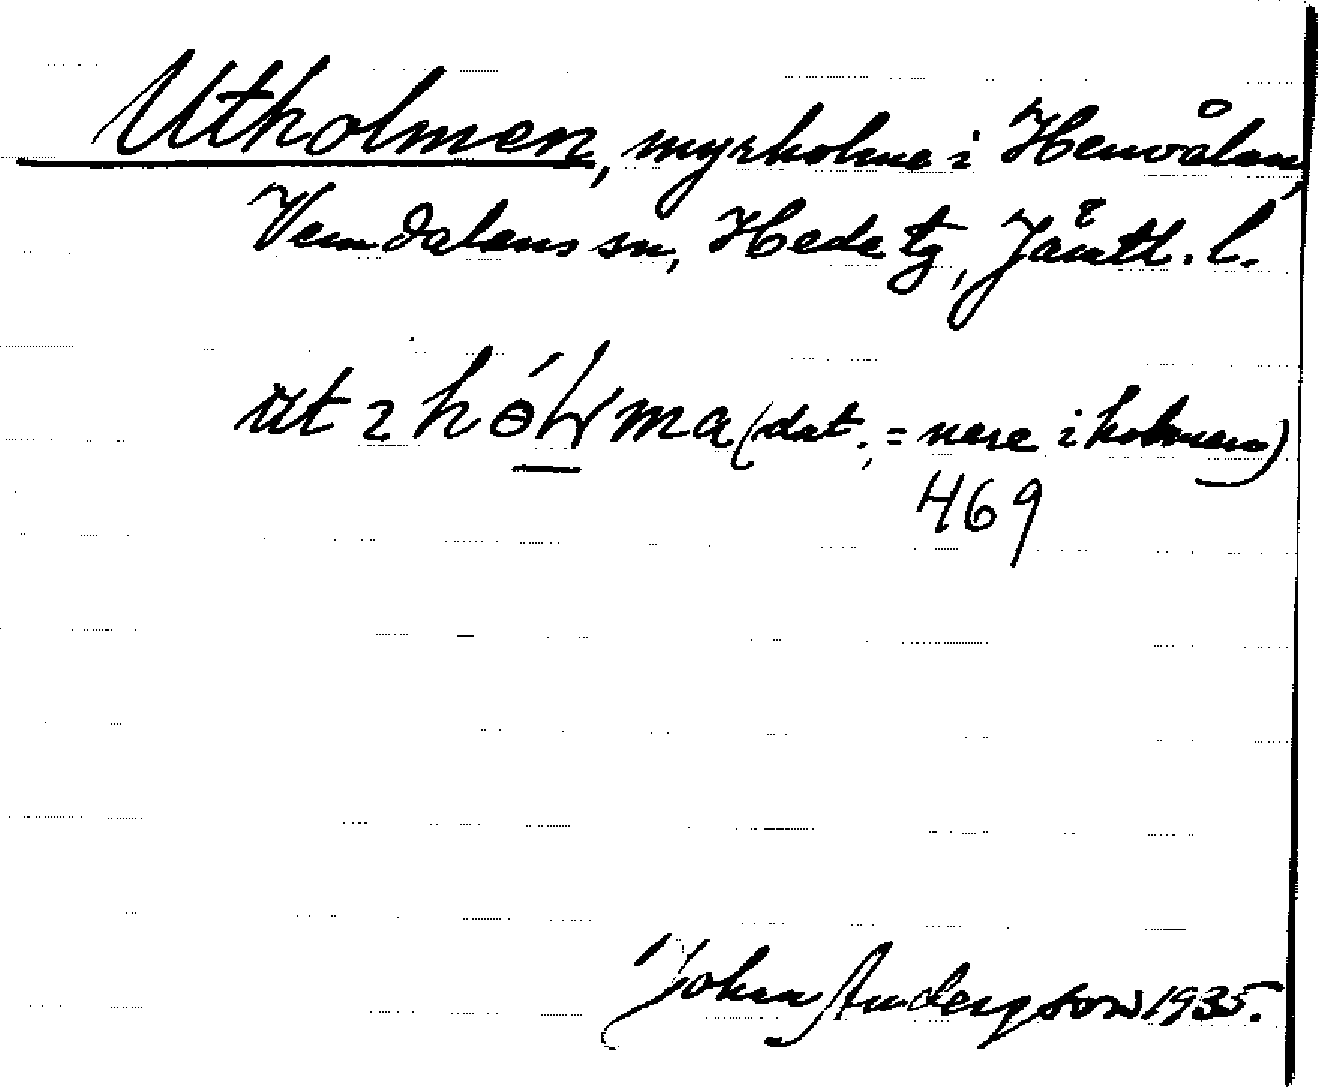 Utholmen, myrholme i Henvålen,
Vemdalens sn, Hede tg, Jämtl. l.
ut 2 hólma (dat., = nere i holmen)
469
John Anderzson 1935.